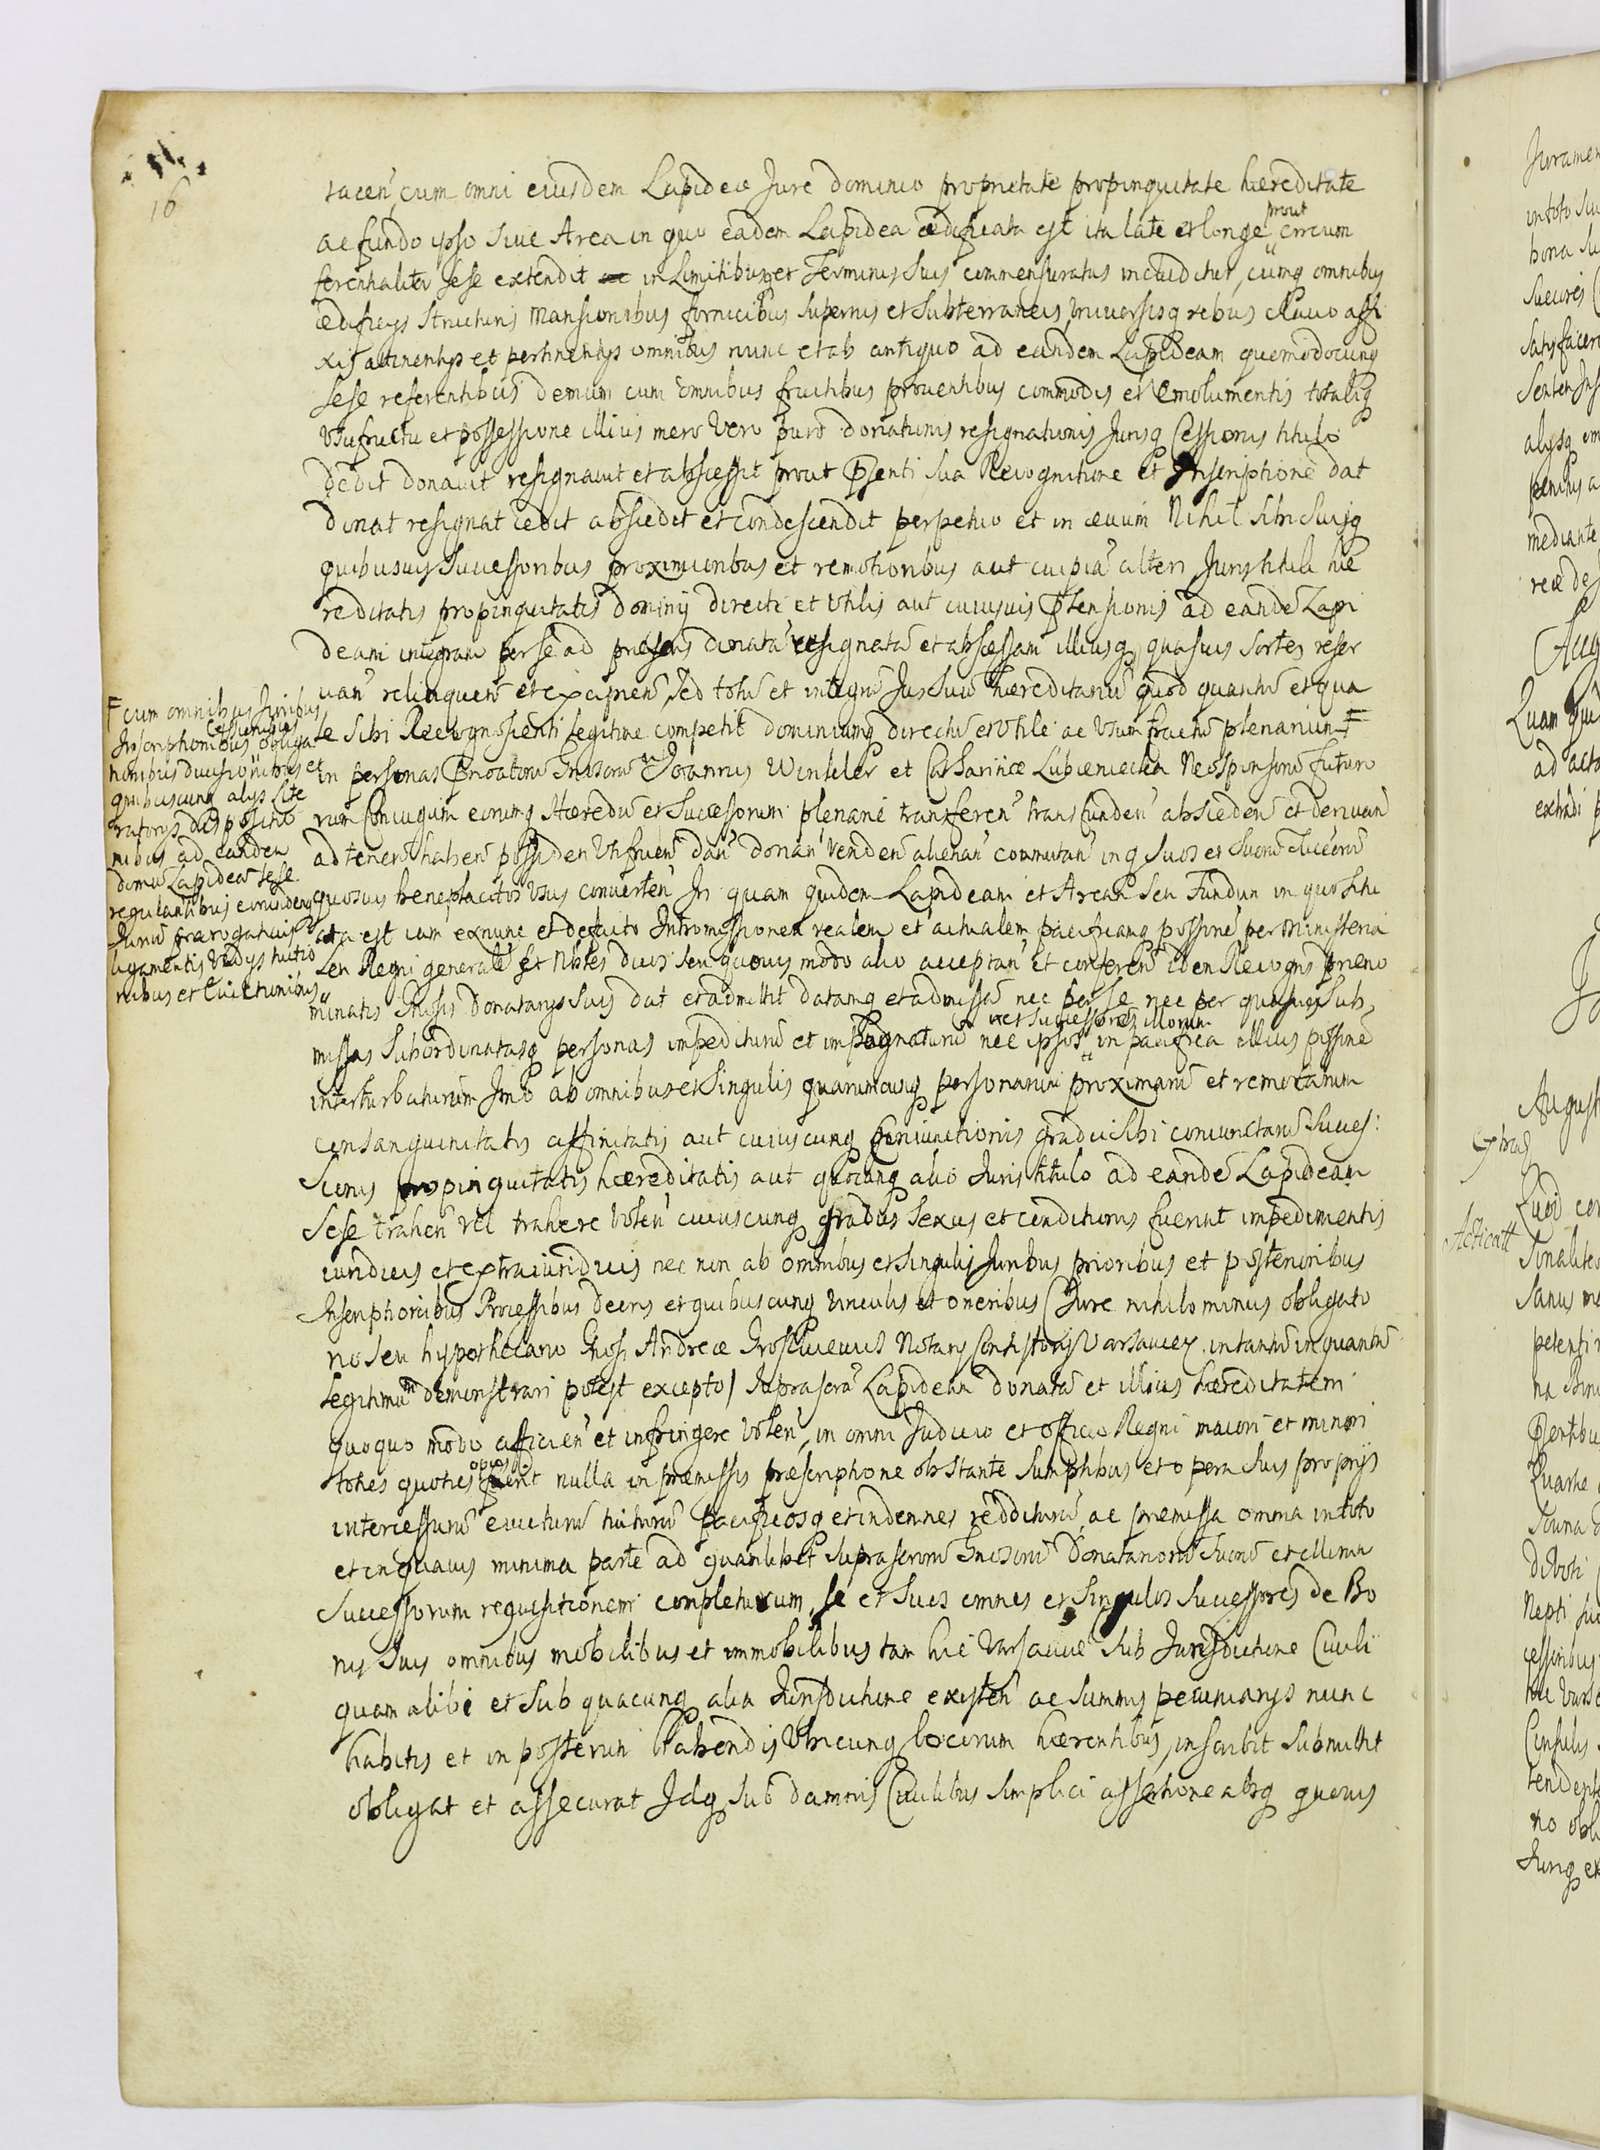 16
iacen cum omni eiusdem Lapideæ Jure dominio proprietate propinquitate hæreditate
ac fundo ipso siue Area in quo eadem Lapidea ædificata est ita late et longe prout circum
ferentialiter sese extendit in Limitibusq et Terminis suis commensuratus includitur, cumq omnibus
ædificijs structuris mansionibus fornicibus supernis et subterraneis Vniuersisq rebus clauo affi
xis attinentijs et pertinentijs omnibus nunc et ab antiquo ad eandem Lapideam quomodocunq
sese referentibus demum cum omnibus fructibus prouentibus commodis et emolumentis totaliq
Vsufructu et possessione illius mero Vero puro donationis resignationis Jurisq Cessionis titulo
dedit donauit resignauit et abscessit prout Pnti sua Recognitione et Inscriptione dat
donat resignat cedit abscedit et condescendit perpetuo et in æuum Nihil sibi suisq
quibusuis Successoribus proximioribus et remotioribus aut cuipia alteri Juris tituli hæ
reditatis propinquitatis dominij directi et Vtilis aut cuiusuis Ptensionis ad eande Lapi
deam integram per se ad præsens donata resignata et abscessam illiusq quasuis sortes reser
uan relinquen et excipien sed totu et integru Jus suu hæreditariu quod quantu et qua
le sibi Recognoscenti legitime competit dominiumq directu et Vtile ac Vsumfructu plenarium F
in personas Pnoatoru Gnosoru Joannis Winkler et Catharinæ Lubieniecka Neosponsoru futuro
rum Coniugum eorumq Hæredu et Successorum plenarie transferen transfunden abscenden et deriuan
ad tenen haben possiden Vtifruen dan donan Venden alienan commutan inq suos et suoru Successoru
quosuis beneplacitos Vsus conuerten In quam quidem Lapideam et Aream seu Fundum in quo situ
ata est iam exnunc et defacto Intromissionem realem et actualem pacificamq possone per Ministeria
len Regni generale et Nobles duos seu quouis modo alio acceptan et conferen idem Recogns prено
minatis Gnosis Donatarijs suis dat et admittit datamq et admissa nec per se nec per quasuis sub
missas subordinatasq personas impediturum et impugnaturu nec ipsos nec successores illorum in pacifica illius possone
interturbaturum Imo ab omnibus et singulis quarumcunq personarum proximaru et remotarum
consanguinitatis affinitatis aut cuiuscunq coniunctionis gradu sibi coniunctaru Succes:
sionis propinquitatis hæreditatis aut quocunq alio Juris titulo ad eande Lapideam
sese trahen vel trahere Volen cuiuscunq gradus sexus et conditionis fuerint impedimentis
iuridicis et extraiuridicis nec non ab omnibus et singulis Juribus prioribus et posterioribus
Inscriptionibus Processibus decretis et quibuscunq Vinculis et oneribus (Jure nihilominus obligato
rio seu hypothecario Gnosi Andreæ Notarij Consistorij Varsauien in tantu in quantu
legitimu demonstrari potest excepto) suprascra Lapideam donata et illius hæreditatem
quoquo modo afficien et infringere Volen, in omni Judicio et officio Regni maiori et minori
toties quoties opus fuerit nulla in præmissis præscriptione obstante sumptibus et opera suis proprijs
intercessuru euicturu tuituru pacificosq et indemnes redditurum ac præmissa omnia in toto
et in quauis minima parte ad quamlibet suprascroru Gnosoru Donatarioru suoru et illorum
Successorum requisitionem completurum, se et suos omnes et singulos successores de Bo
nis suis omnibus mobilibus et immobilibus tam hic Varsauiæ sub Jurisdictione Ciuili
quam alibi et sub quacunq alia Jurisdictione existen ac summis pecuniarijs nunc
habitis et in posterum habendis Vbicunq locorum hærentibus, inscribit submittit
obligat et assecurat Idq sub damnis Ciuilibus simplici assertione absq quouis
F cum omnibus Juribus
Inscriptionibus Cessionibus obliga
tionibus diuisionibus et
quibuscunq alijs lite
ratorijs dispositio
nibus ad eandem
domu Lapidea sese
regulantibus eorundemq
Juriu prærogatiuis
ligamentis Vadijs tuitio
nibus et Euictionibus
Acticatt